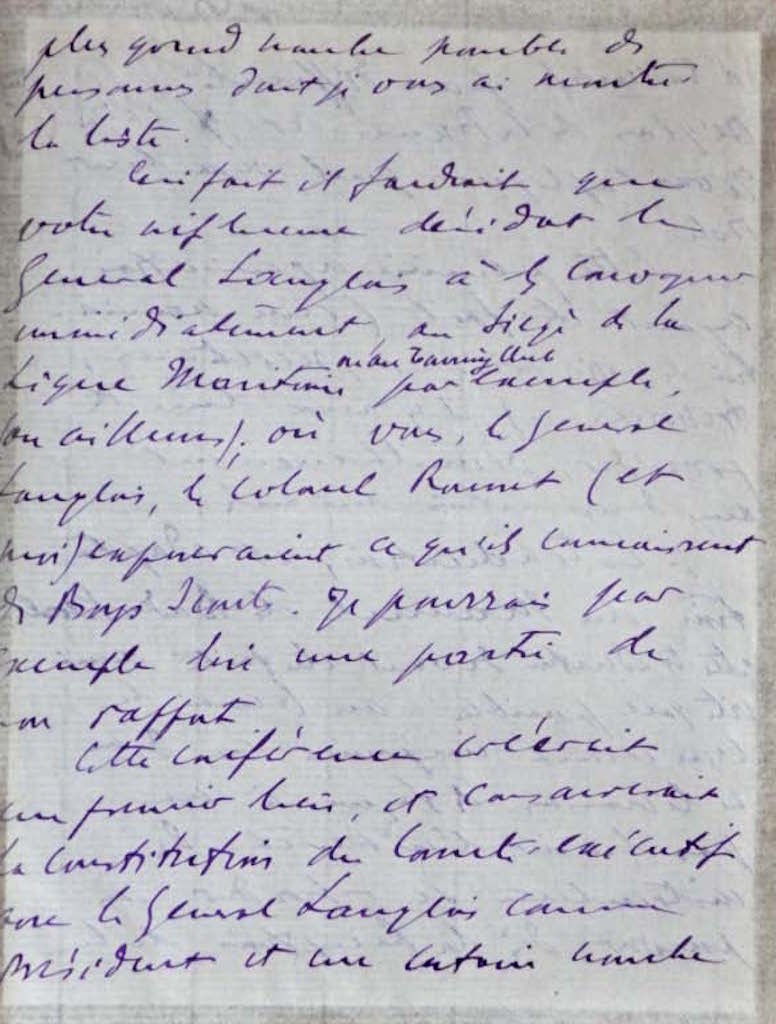 plus grand nombre possible de
personnes dont je vous ai montré
la liste.
Ceci fait il faudrait que
votre influence décidat le
Général Langlois à les convoquer
immédiatement, au siège de la
ou au Touring Club
Ligue Maritime par exemple,
ou ailleurs), où vous, le général
Langlois, le Colonel Royet (et
moi) exposeraient ce qu'ils connaissent
des Boys Scouts. Je pourrais par
exemple lire une partie de
mon rapport
Cette conférence créerait
un premier lien, et consacrerait
la constitution du Comité exécutif
avec le Général Langlois comme
président et un certain nombre